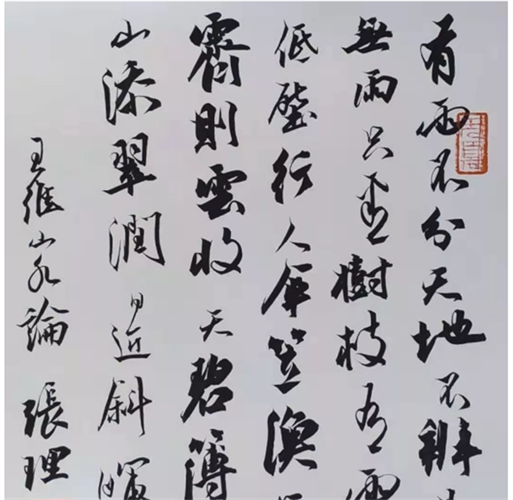 有雨不分天地不辨
無雨只看樹枝有雨
低壓行人傘笠漁
霽則雲收天碧薄
山添翠潤日近斜暉
王維山水論 張理